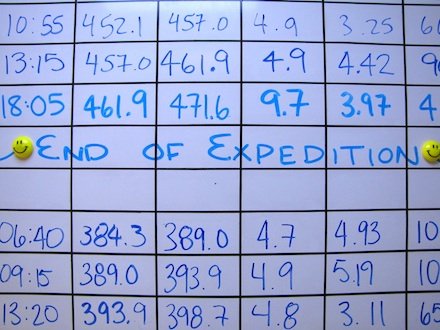 10:55 452.1 457.0 4.9 3.25 60
13:15 457.0 461.9 4.9 4.42 90
18:05 461.9 471.6 9.7 3.97 4
END OF EXPEDITION
06:40 384.3 389.0 4.7 4.93 10
09:15 389.0 393.9 4.9 5.19 10
13:20 393.9 398.7 4.8 3.11 65